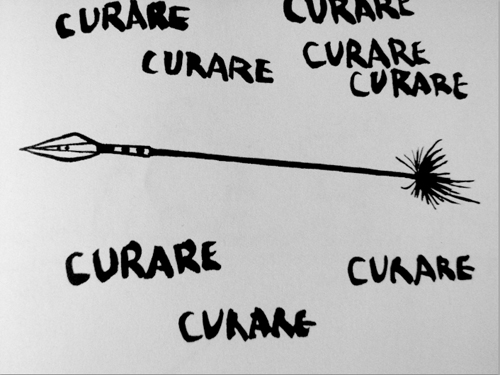 CURARE
CURARE
CURARE
CURARE
CURARE
CURARE
CURARE
CURARE